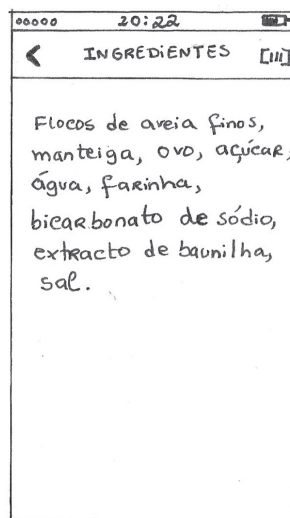 20:22
INGREDIENTES
Flocos de aveia finos,
manteiga, ovo, açúcar,
água, farinha,
bicarbonato de sódio,
extracto de baunilha,
sal.